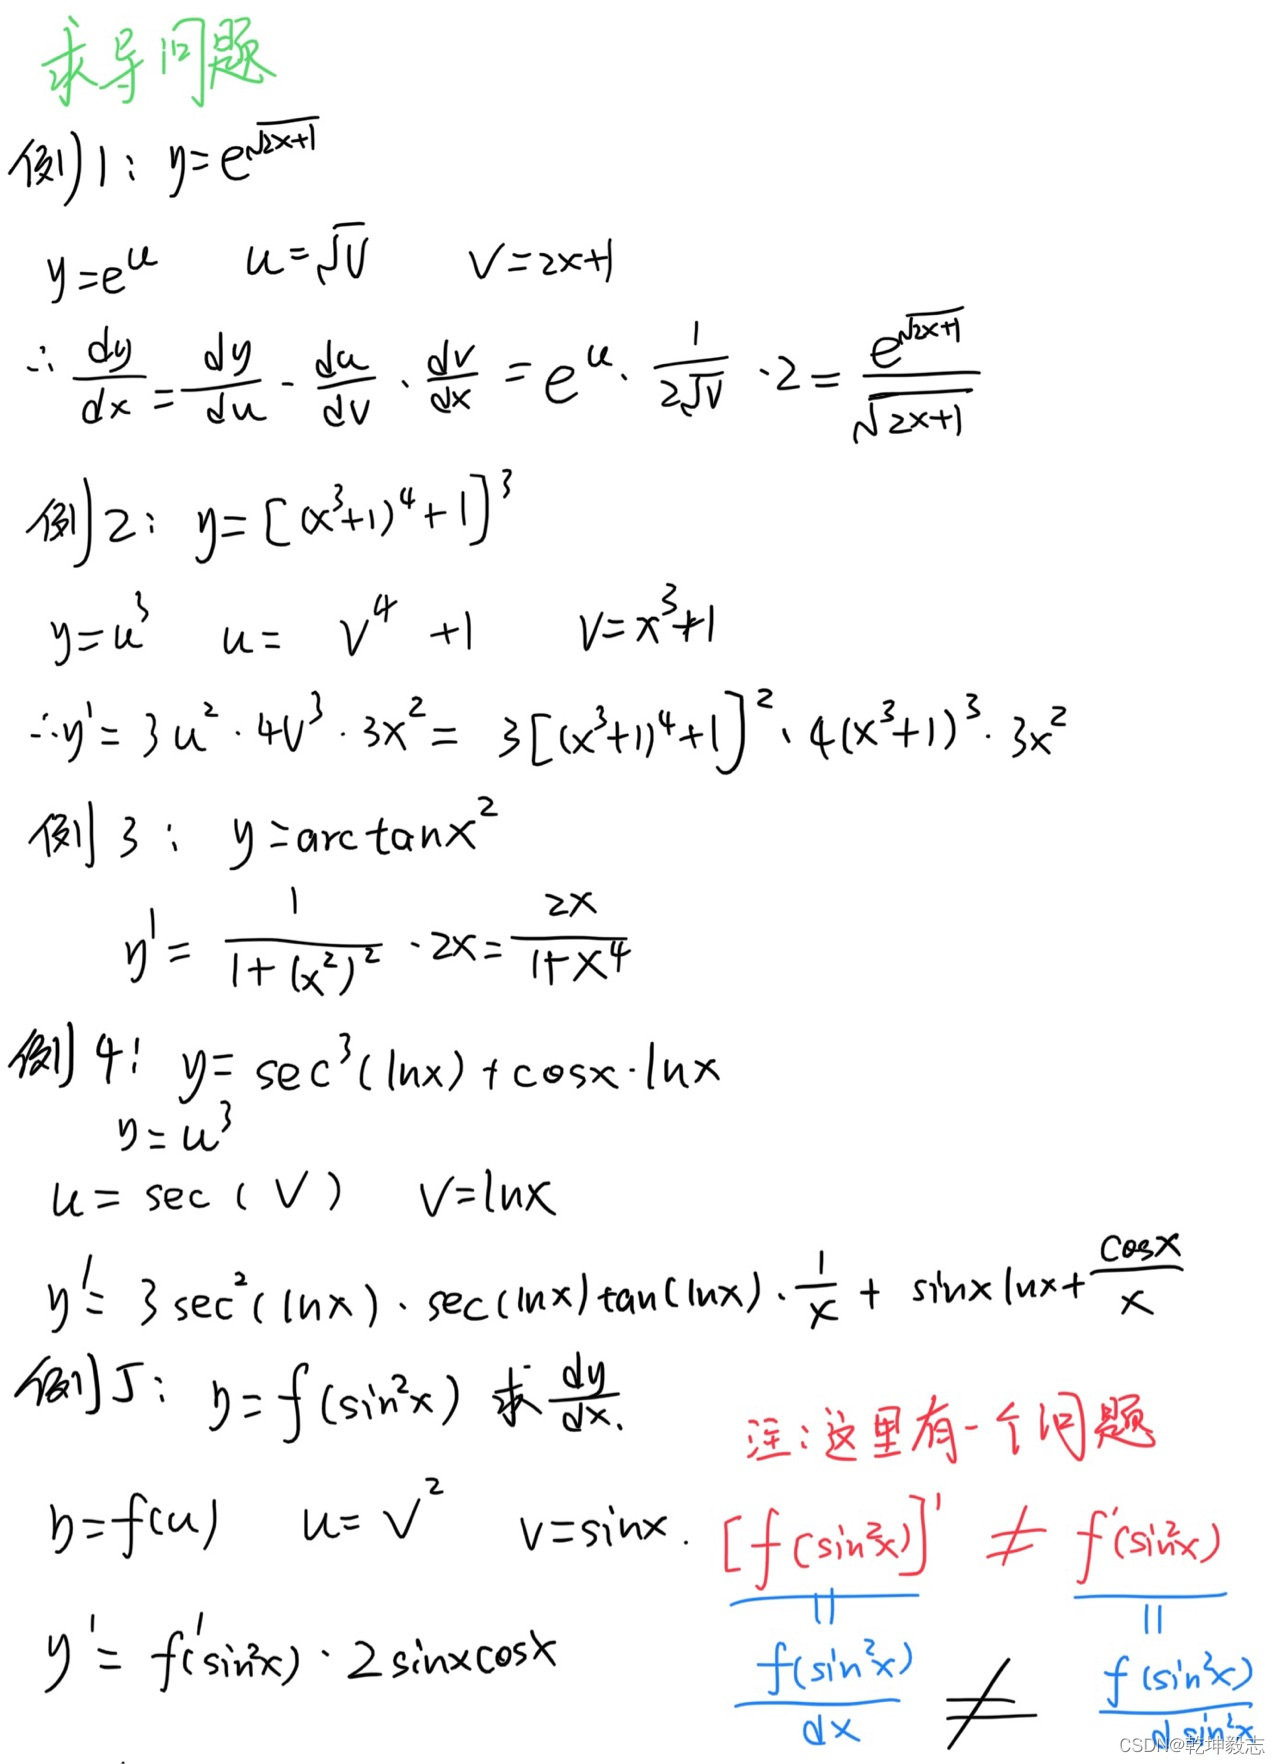 求导问题
例1: y=e^√(2x+1)
y=e^u  u=√v  v=2x+1
∴ dy/dx = dy/du · du/dv · dv/dx = e^u · 1/(2√v) · 2 = e^√(2x+1)/√(2x+1)
例2: y=[(x³+1)⁴+1]³
y=u³  u= v⁴ +1  v=x³+1
∴y'=3u²·4v³·3x²= 3[(x³+1)⁴+1]²·4(x³+1)³·3x²
例3: y=arctanx²
y'= 1/(1+(x²)²) ·2x= 2x/(1+x⁴)
例4: y= sec³(lnx)+cosx·lnx
y=u³
u= sec(v)  v=lnx
y'= 3sec²(lnx)·sec(lnx)tan(lnx)·1/x + sinxlnx+ cosx/x
例5: y=f(sin²x) 求 dy/dx.
注:这里有一个问题
y=f(u)  u=v²  v=sinx.
[f(sin²x)]' ≠ f'(sin²x)
= =
y'= f'(sin²x)·2sinxcosx
f(sin²x)/dx ≠ f(sin²x)/dsin²x
CSDN@乾坤毅志